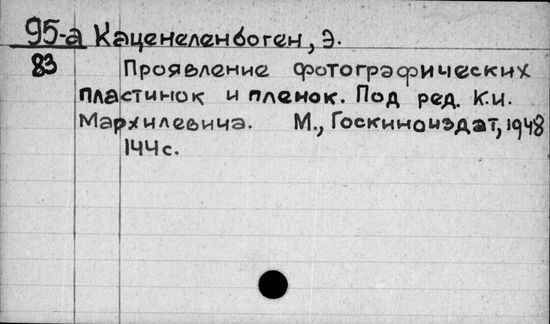 95-а Каценеленбоген, Э.
83 Проявление фотографических
пластинок и пленок. Под ред. К.И.
Мархилевича. М., Госкиноиздат, 1948
144с.